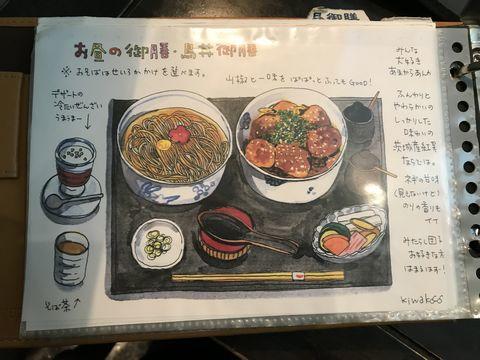 お昼の御膳・鳥丼御膳
※ お そばは せいろ か かけ を 選べます。
山椒と一味を ぱぱぱっと ふっても GOOD!
デザートの
冷たいぜんざい
うまうまー
そば茶
みんな
大好き
あまからあんか
ふんわりと
やわらかいの
しっかりした
味わいの
茨城産紅鳥
ならでは。
ネギの甘味
(見えないけど)
のりの香りも
イイ
みたらし団子
お好きな方
はまるはず!
kiwakoss